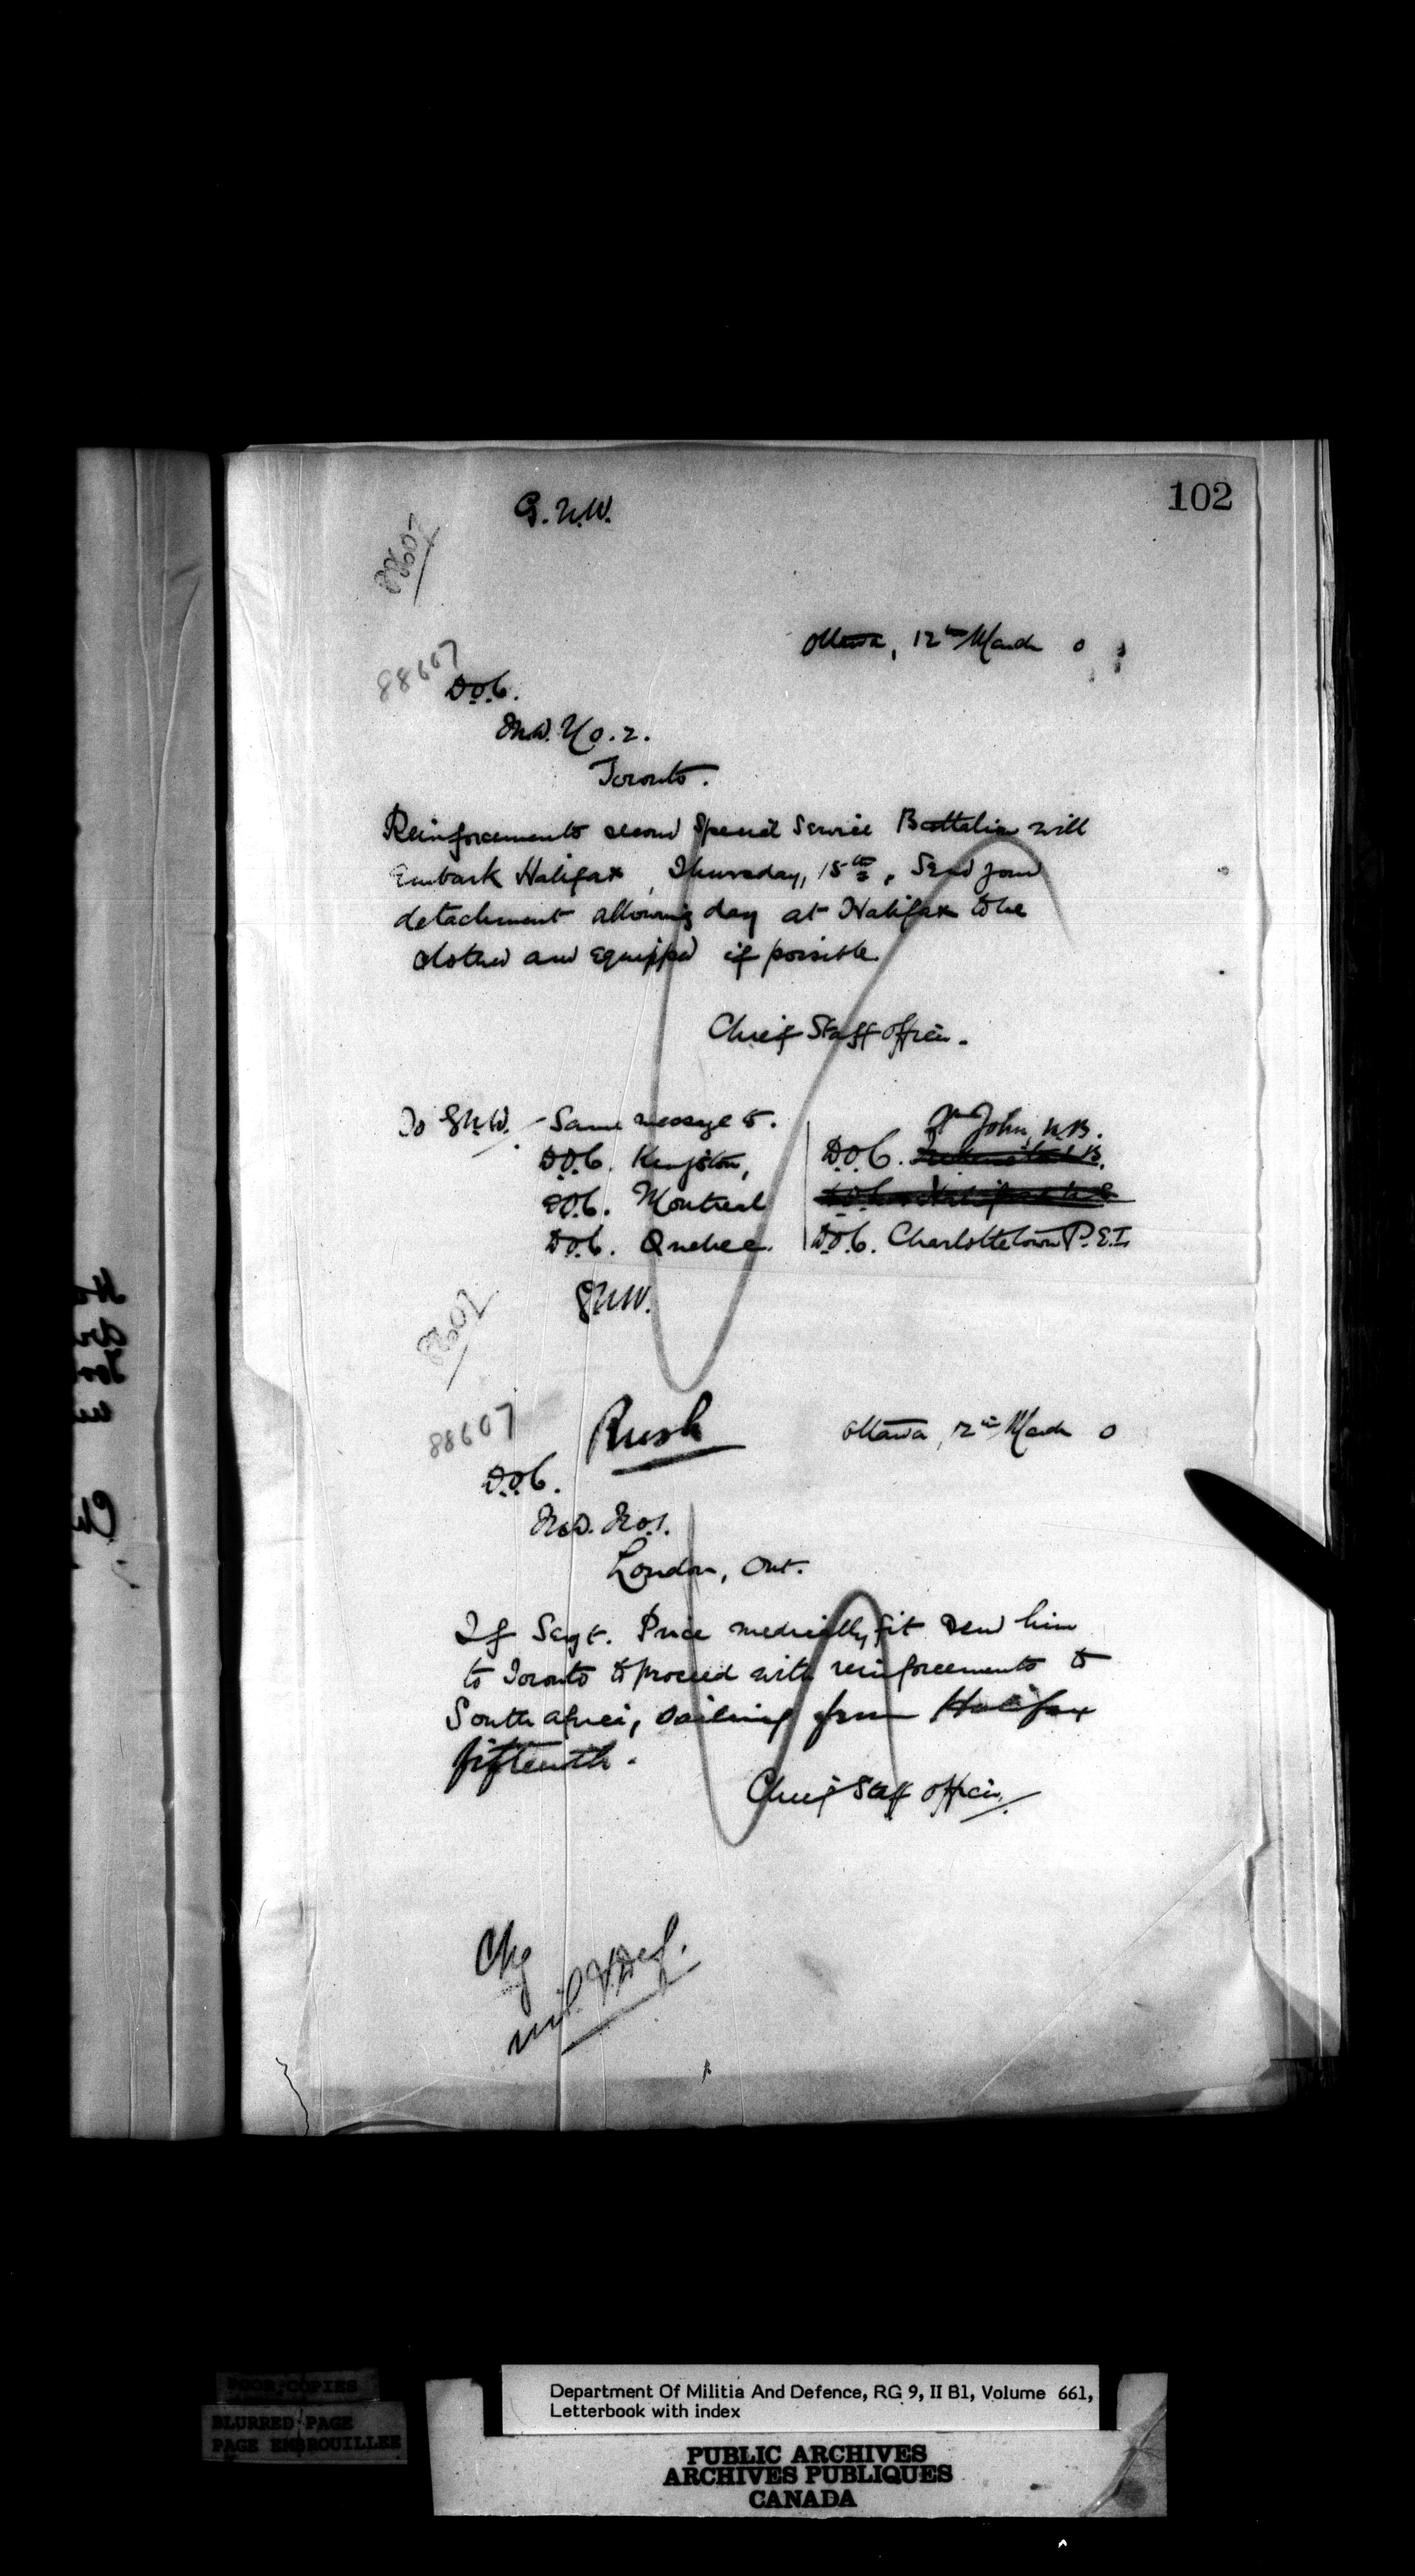 102
G.N.W.
88607
Ottawa, 12th March 0
88607
D.O.C.
M.D. No. 2.
Toronto.
Reinforcements second Special Service Battalion will
Embark Halifax, Thursday, 15th. Send your
detachment allowing day at Halifax to be
clothed and equipped if possible.
Chief Staff Officer.
To G.N.W. - Same message to.
St John, N.B.
D.O.C. Kingston, D.O.C.
D.O.C. Montreal
D.O.C. Quebec. D.O.C. Charlottetown P.E.I.
G.N.W.
88607
88607
Rush
Ottawa, 12th March 0
D.O.C.
M.D. No. 1.
London, Ont.
If Sergt. Price medically fit send him
to Toronto to proceed with reinforcements to
South Africa, sailing from Halifax
fifteenth.
Chief Staff Officer.
Chg
Mil. & Def.
POOR COPIES
BLURRED PAGE
PAGE EMBROUILLEE
Department Of Militia And Defence, RG 9, II B1, Volume 661,
Letterbook with index
PUBLIC ARCHIVES
ARCHIVES PUBLIQUES
CANADA